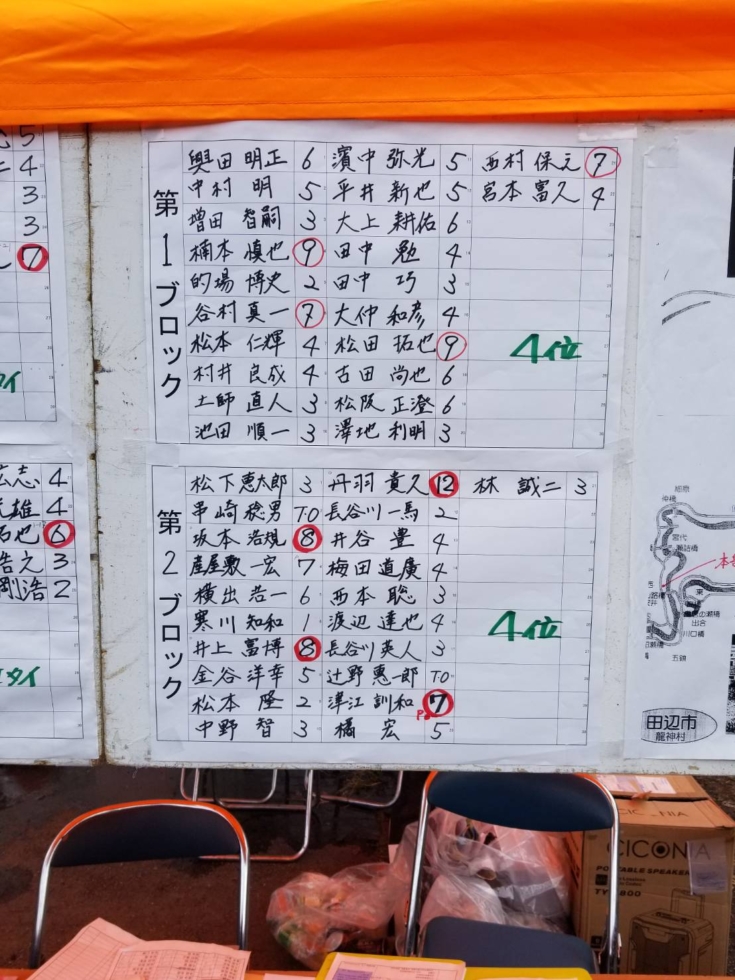 5
4
3
3
⑦
タイ
宏志 4
雄 4
拓也 ⑥
浩之 3
剛浩 2
タイ
第1ブロック
奥田 明正 6 濱中 弥光 5 西村 保元 ⑦
中村 明 5 平井 新也 5 宮本 富久 4
増田 智嗣 3 大上 耕佑 6
楠本 慎也 ⑨ 田中 勉 4
的場 博史 2 田中 巧 3
谷村 真一 ⑦ 大仲 和彦 4
松本 仁輝 4 松田 拓也 ⑨
4位
村井 良成 4 古田 尚也 6
土師 直人 3 松阪 正澄 6
池田 順一 3 澤地 利明 3
第2ブロック
松下 恵太郎 3 丹羽 貴久 ⑫ 林 誠二 3
串崎 稔男 T.O 長谷川 一馬 2
坂本 浩規 ⑧ 井谷 豊 4
産屋敷 一宏 7 梅田 道廣 4
横出 浩一 6 西本 聡 3
寒川 知和 1 渡辺 達也 4
4位
井上 富博 ⑧ 長谷川 英人 3
金谷 洋幸 5 辻野 惠一郎 T.O
松本 隆 2 津江 訓和 ⑦
中野 智 3 橘 宏 5
宮代
東
出合
川口橋
五味
田辺市
龍神村
CICONIA
PORTABLE SPEAKER